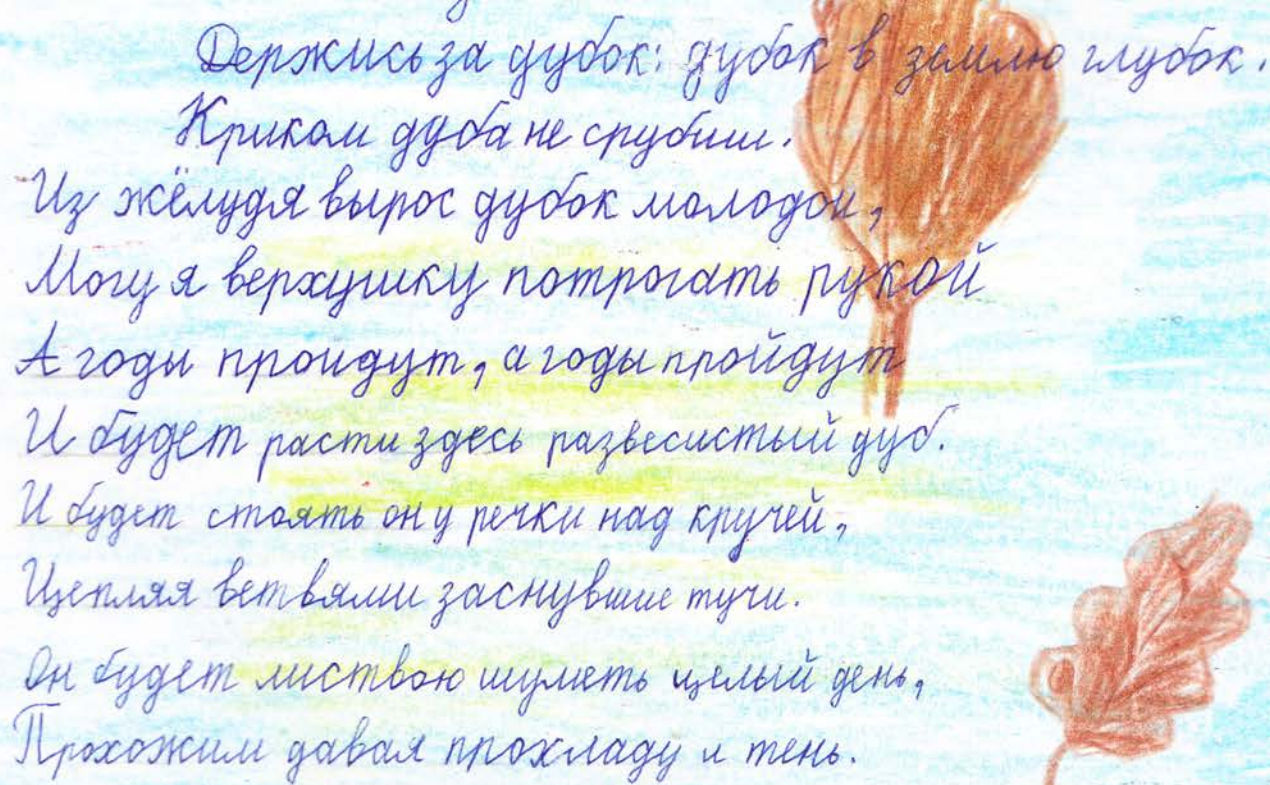 Держись за дубок: дубок в землю глубок.
Криком дуба не срубиш.
Из жёлудя вырос дубок молодой,
Могу я верхушку потрогать рукой
А годы пройдут, а годы пройдут
И будет расти здесь развесистый дуб.
И будет стоять он у речки над кручей,
Цепляя ветвями заснувшие тучи.
Он будет листвою шуметь целый день,
Прохожим давая прохладу и тень.